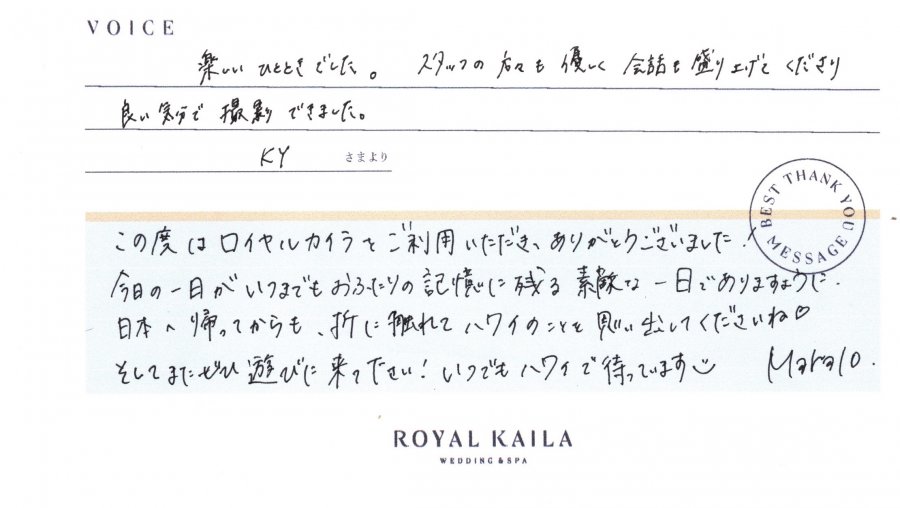 VOICE
楽しいひとときでした。 スタッフの方々も優しく会話も盛り上げてくださり
良い気分で撮影できました。
KY さまより
BEST THANK YOU MESSAGE
この度はロイヤルカイラをご利用いただき、ありがとうございました！
今日の一日がいつまでもおふたりの記憶に残る素敵な一日でありますように.
日本へ帰ってからも、折に触れてハワイのことを思い出してくださいね♡
そしてまたぜひ遊びに来て下さい！いつでもハワイで待っています
ROYAL KAILA
WEDDING & SPA